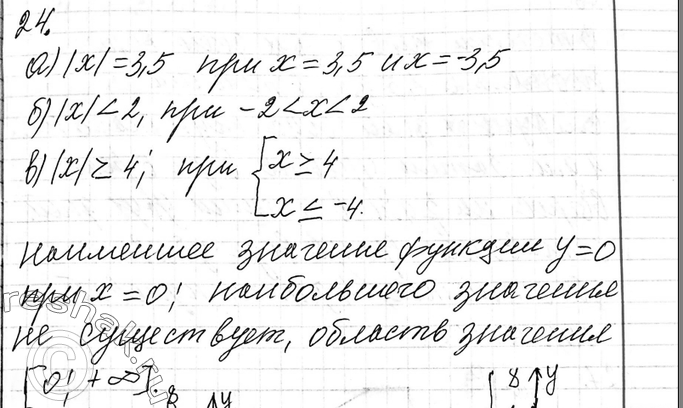 24.
а) |x| = 3,5 при x = 3,5 и x = -3,5
б) |x| < 2, при -2 < x < 2
в) |x| ≥ 4; при [ x ≥ 4
x ≤ -4.
наименшее значение функции y = 0
при x = 0; наибольшего значения
не существует, область значения
[0; +∞].
8 y
8 y
reshak.ru
©